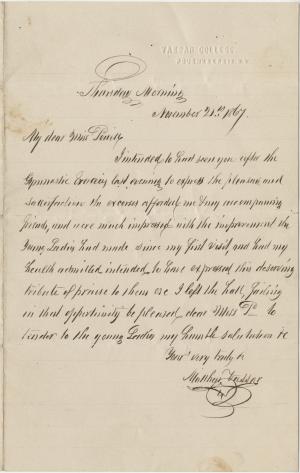 VASSAR COLLEGE,
POUGHKEEPSIE, N.Y.
Thursday Morning
November 21st 1867.
My dear Miss Powell
I intended to had seen you after the
Gymnastic Exercises last evening to express the pleasure and
satisfaction the exercises afforded me & my accompanying
friends, and were much impressed with the improvement the
Young Ladies had made since my first visit, and had my
health admitted, intended to have expressed this deserving
tribute of praise to them ere I left the Hall, Failing
in that opportunity be pleased, dear Miss P. to
tender to the young Ladies my humble salutation &c
Yours very truly &c
Matthew Vassar